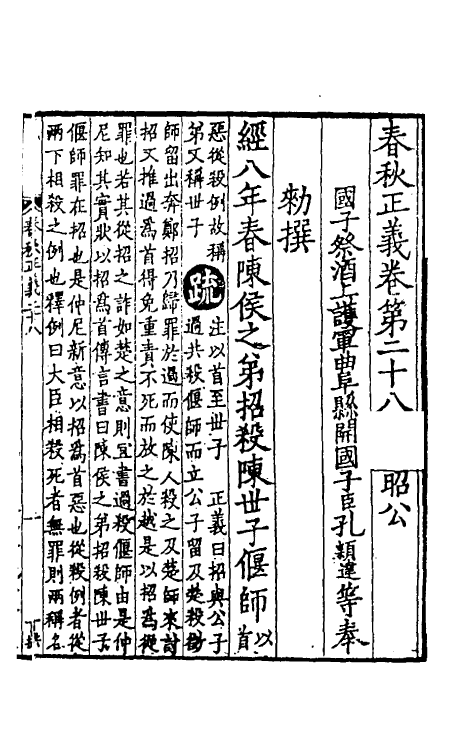 春秋正義卷第二十八　昭公
國子祭酒上護軍曲阜縣開國子臣孔穎達等奉
勑撰
經八年春陳侯之弟招殺陳世子偃師以首
惡從殺例故稱
弟又稱世子疏注以首至世子　正義曰招與公子
過共殺偃師而立公子留及楚殺
師留出奔鄭招乃歸罪於過而使陳人殺之及楚師來討
招又推過爲首得免重責不死而放之於越是以招爲從
罪也若其從招之詐如楚之意則宜書過殺偃師由是仲
尼知其實狀以招爲首傳言書曰陳侯之弟招殺陳世子
偃師罪在招也是仲尼新意以招爲首惡也從殺例者從
兩下相殺之例也釋例曰大臣相殺死者無罪則兩稱名
春秋正義二十八
一